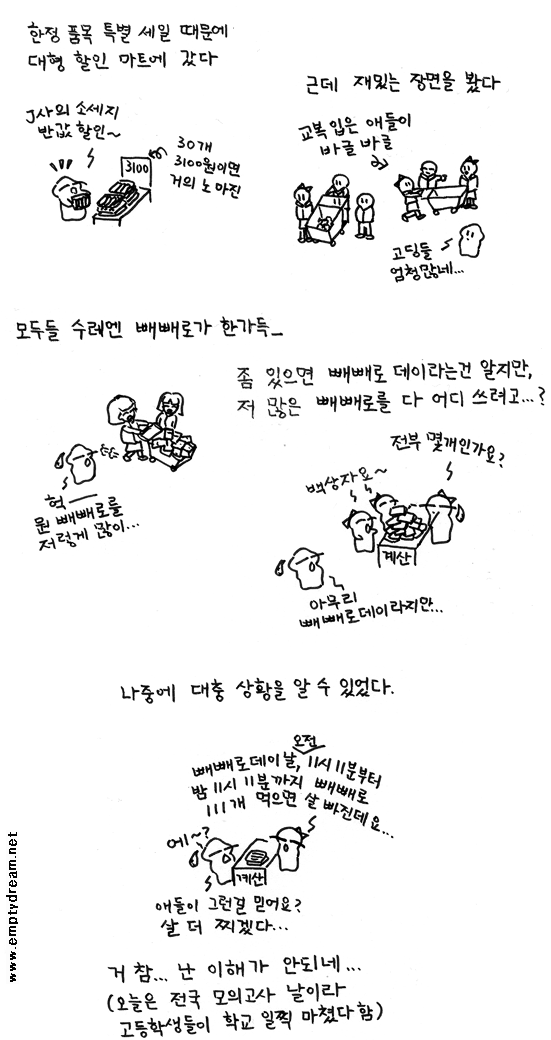 한정 품목 특별 세일 때문에
대형 할인 마트에 갔다
J사의 소세지
반값 할인~
3100
30개
3100원이면
거의 노 마진
근데 재밌는 장면을 봤다
교복 입은 애들이
바글 바글
고딩들
엄청많네...
모두들 수레엔 빼빼로가 한가득_
헉
뭔 빼빼로를
저렇게 많이...
좀 있으면 빼빼로 데이라는건 알지만,
저 많은 빼빼로를 다 어디 쓰려고...?
전부 몇개인가요?
백상자요~
계산
아무리
빼빼로데이라지만...
나중에 대충 상황을 알 수 있었다.
오전
빼빼로데이날, 11시 11분부터
밤 11시 11분까지 빼빼로
111개 먹으면 살 빠진데요...
에~?
계산
애들이 그런걸 믿어요?
살 더 찌겠다...
거 참... 난 이해가 안되네...
(오늘은 전국 모의고사 날이라
고등학생들이 학교 일찍 마쳤다 함)
www.emptydream.net